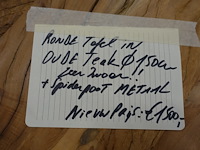 RONDE Tafel in
OUDE Teak Ø 150cm
Zeer Zwaar!!
+ Spiderpoot METAAL
Nieuw Prijs: €1500,-